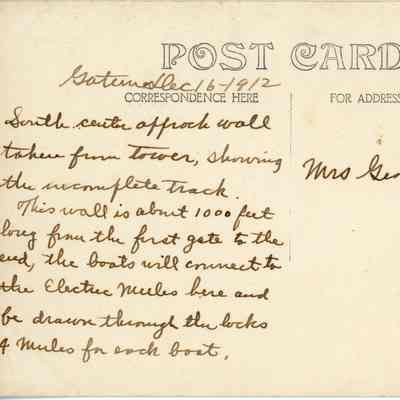 POST CARD
Gatun Dec 16-1912
CORRESPONDENCE HERE
FOR ADDRESS
South center approch wall
taken from tower, showing
the incomplete track.
This wall is about 1000 feet
long from the first gate to the
end, the boats will connect to
the Electric Mules here and
be drawn through the locks
4 Mules for each boat.
Mrs Geo